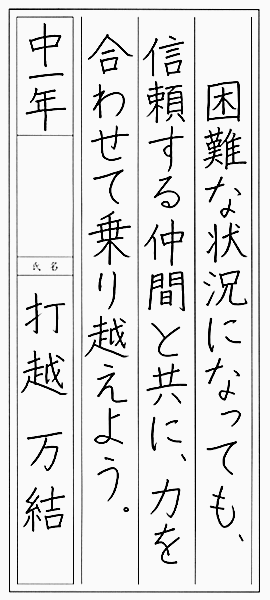 困難な状況になっても、
信頼する仲間と共に、力を
合わせて乗り越えよう。
中一年
氏名
打越 万結